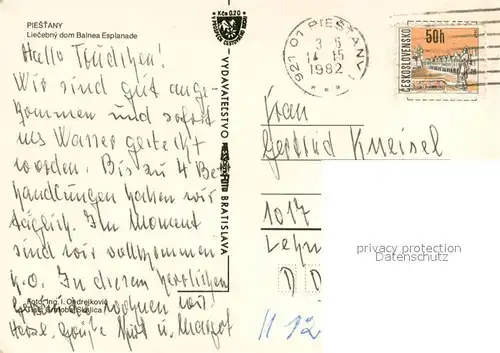 PIEŠŤANY
Liečebný dom Balnea Esplanade
Kčs 0,20
Hallo
Wir sind gut ange-
kommen und sofort
ins Wasser gesteckt
worden. Bis zu 4 Be-
handlungen haben wir
täglich. Im Moment
sind wir vollkommen
k.o. In diesem herrlichen
wohnen wir!
Herzl. Grüße u. Margot
Foto: Ing. I. Ondrejkovič
Skalica
VYDAVATEĽSTVO
BRATISLAVA
921 01 PIEŠŤANY
1982
ČESKOSLOVENSKO
50h
Frau
Gertrud Kneisel
1017
Lehn
D D
H 12
privacy protection overlay
on sample image